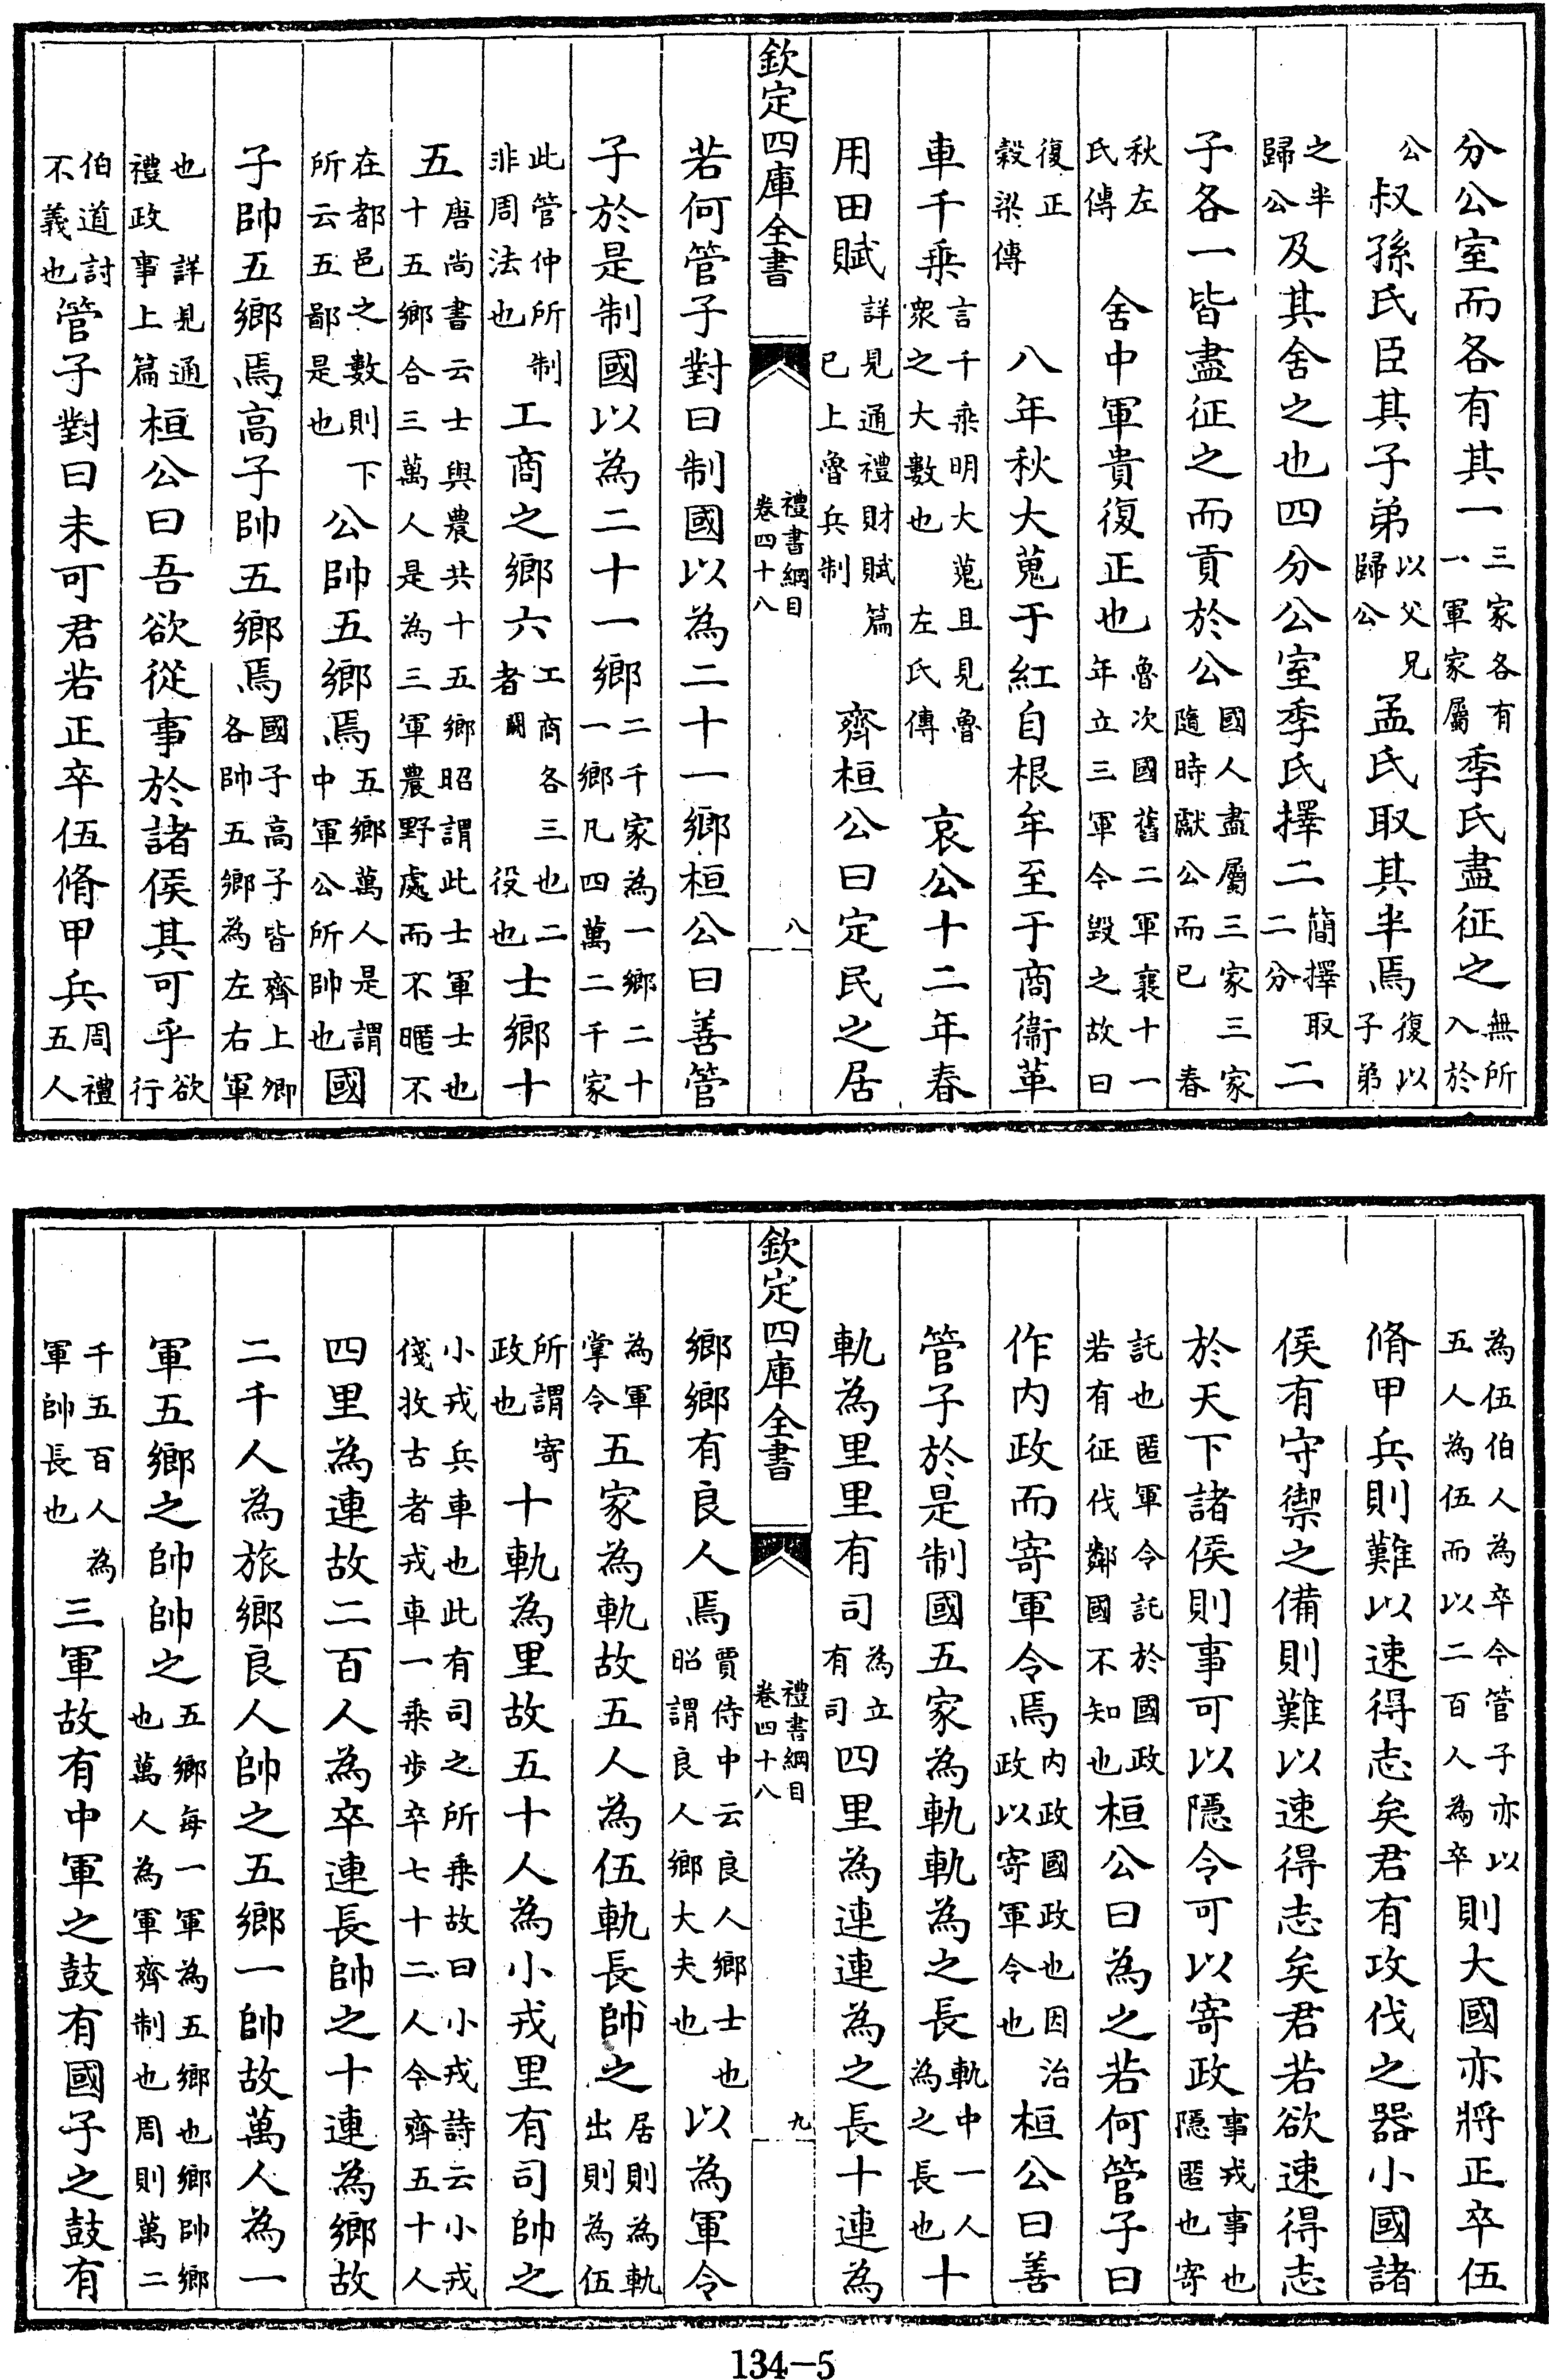 分公室而各有其一三家各有一軍家屬季氏盡征之無所入於
公叔孫氏臣其子弟以父兄歸公孟氏取其半焉復以子弟
之半歸公及其舍之也四分公室季氏擇二簡擇取二分二
子各一皆盡征之而貢於公國人盡屬三家三家隨時獻公而已春
秋左氏傳舍中軍貴復正也魯次國舊二軍襄十一年立三軍今毀之故曰
復正穀梁傳八年秋大蒐于紅自根牟至于商衛革
車千乗言千乗明大蒐且見魯衆之大數也左氏傳哀公十二年春
用田賦詳見通禮財賦篇已上魯兵制齊桓公曰定民之居
欽定四庫全書 禮書綱目卷四十八 八
若何管子對曰制國以為二十一鄉桓公曰善管
子於是制國以為二十一鄉二千家為一鄉二十一鄉凡四萬二千家
此管仲所制非周法也工商之鄉六工商各三也二者闕役也士鄉十
五唐尚書云士與農共十五鄉昭謂此士軍士也十五鄉合三萬人是為三軍農野處而不暱不
在都邑之數則下所云五鄙是也公帥五鄉焉五鄉萬人是謂中軍公所帥也國
子帥五鄉焉高子帥五鄉焉國子高子皆齊上卿各帥五鄉為左右軍
也詳見通禮政事上篇桓公曰吾欲從事於諸侯其可乎欲行
伯道討不義也管子對曰未可君若正卒伍脩甲兵周禮五人
為伍伯人為卒今管子亦以五人為伍而以二百人為卒則大國亦將正卒伍
脩甲兵則難以速得志矣君有攻伐之器小國諸
侯有守禦之備則難以速得志矣君若欲速得志
於天下諸侯則事可以隱令可以寄政事戎事也隱匿也寄
託也匿軍令託於國政若有征伐鄰國不知也桓公曰為之若何管子曰
作内政而寄軍令焉内政國政也因治政以寄軍令也桓公曰善
管子於是制國五家為軌軌為之長軌中一人為之長也十
軌為里里有司為立有司四里為連連為之長十連為
欽定四庫全書 禮書綱目卷四十八 九
鄉鄉有良人焉賈侍中云良人鄉士也昭謂良人鄉大夫也以為軍令
為軍掌令五家為軌故五人為伍軌長帥之居則為軌出則為伍
所謂寄政也十軌為里故五十人為小戎里有司帥之
小戎兵車也此有司之所乗故曰小戎詩云小戎俴收古者戎車一乗步卒七十二人今齊五十人
四里為連故二百人為卒連長帥之十連為鄉故
二千人為旅鄉良人帥之五鄉一帥故萬人為一
軍五鄉之帥帥之五鄉每一軍為五鄉也鄉帥鄉也萬人為軍齊制也周則萬二
千五百人為軍帥長也三軍故有中軍之鼓有國子之鼓有
134-5